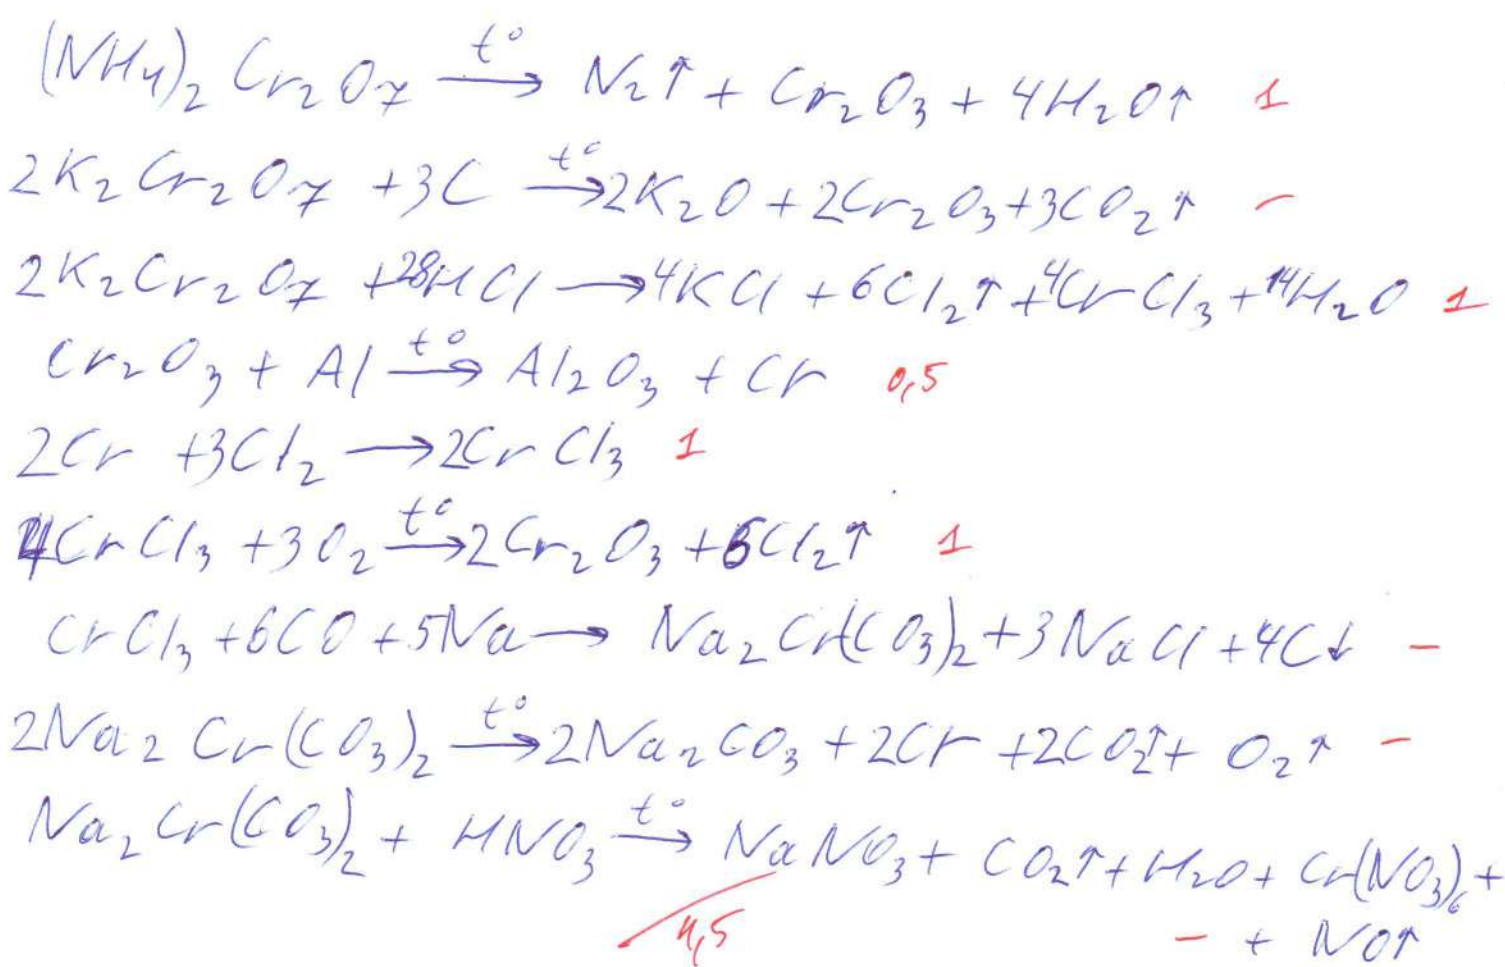 (NH4)2 Cr2O7 —t°→ N2↑ + Cr2O3 + 4H2O↑ 1
2K2Cr2O7 +3C —t°→ 2K2O + 2Cr2O3+3CO2↑ –
2K2Cr2O7 +28HCl → 4KCl + 6Cl2↑ +4CrCl3 + 14H2O 1
Cr2O3 + Al —t°→ Al2O3 + Cr 0,5
2Cr +3Cl2 → 2CrCl3 1
4CrCl3 +3O2 —t°→ 2Cr2O3 +6Cl2↑ 1
CrCl3 +6CO +5Na → Na2Cr(CO3)2 +3NaCl +4C↓ –
2Na2Cr(CO3)2 —t°→ 2Na2CO3 +2Cr +2CO2↑+ O2↑ –
Na2Cr(CO3)2 + HNO3 —t°→ NaNO3 + CO2↑ + H2O + Cr(NO3)6 +
4,5 – + NO↑